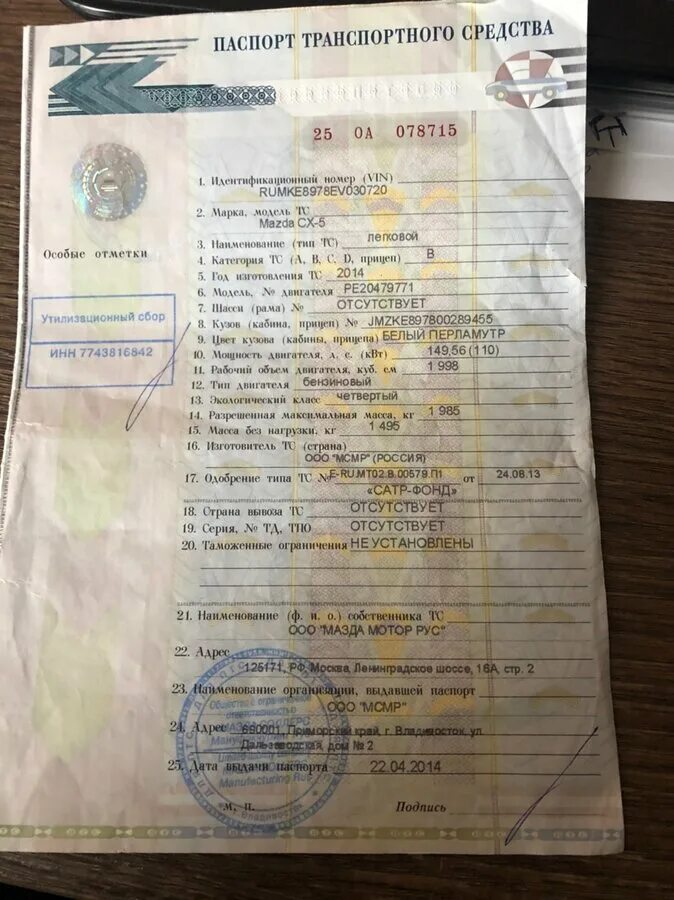 ПАСПОРТ ТРАНСПОРТНОГО СРЕДСТВА
25 ОА 078715
1. Идентификационный номер (VIN)
RUMKE8978EV030720
2. Марка, модель ТС
Mazda CX-5
3. Наименование (тип ТС) легковой
4. Категория ТС (А, В, С, D, прицеп) В
Особые отметки
5. Год изготовления ТС 2014
6. Модель, № двигателя PE20479771
7. Шасси (рама) № ОТСУТСТВУЕТ
8. Кузов (кабина, прицеп) № JMZKE897800289455
9. Цвет кузова (кабины, прицепа) БЕЛЫЙ ПЕРЛАМУТР
10. Мощность двигателя, л. с. (кВт) 149,56 (110)
11. Рабочий объем двигателя, куб. см 1 998
12. Тип двигателя бензиновый
13. Экологический класс четвертый
14. Разрешенная максимальная масса, кг 1 985
15. Масса без нагрузки, кг 1 495
Утилизационный сбор
ИНН 7743816842
16. Изготовитель ТС (страна)
ООО "МСМР" (РОССИЯ)
17. Одобрение типа ТС № E-RU.МТ02.В.00579.П1 от 24.08.13
«САТР-ФОНД»
18. Страна вывоза ТС ОТСУТСТВУЕТ
19. Серия, № ТД, ТПО ОТСУТСТВУЕТ
20. Таможенные ограничения НЕ УСТАНОВЛЕНЫ
21. Наименование (ф. и. о.) собственника ТС
ООО "МАЗДА МОТОР РУС"
22. Адрес
125171, РФ, Москва, Ленинградское шоссе, 16А, стр. 2
23. Наименование организации, выдавшей паспорт
ООО "МСМР"
24. Адрес 690001, Приморский край, г. Владивосток, ул.
Дальзаводская, дом № 2
25. Дата выдачи паспорта 22.04.2014
м. п. Подпись
Общество с ограниченной
ответственностью
Manufacturing Rus
Владивосток